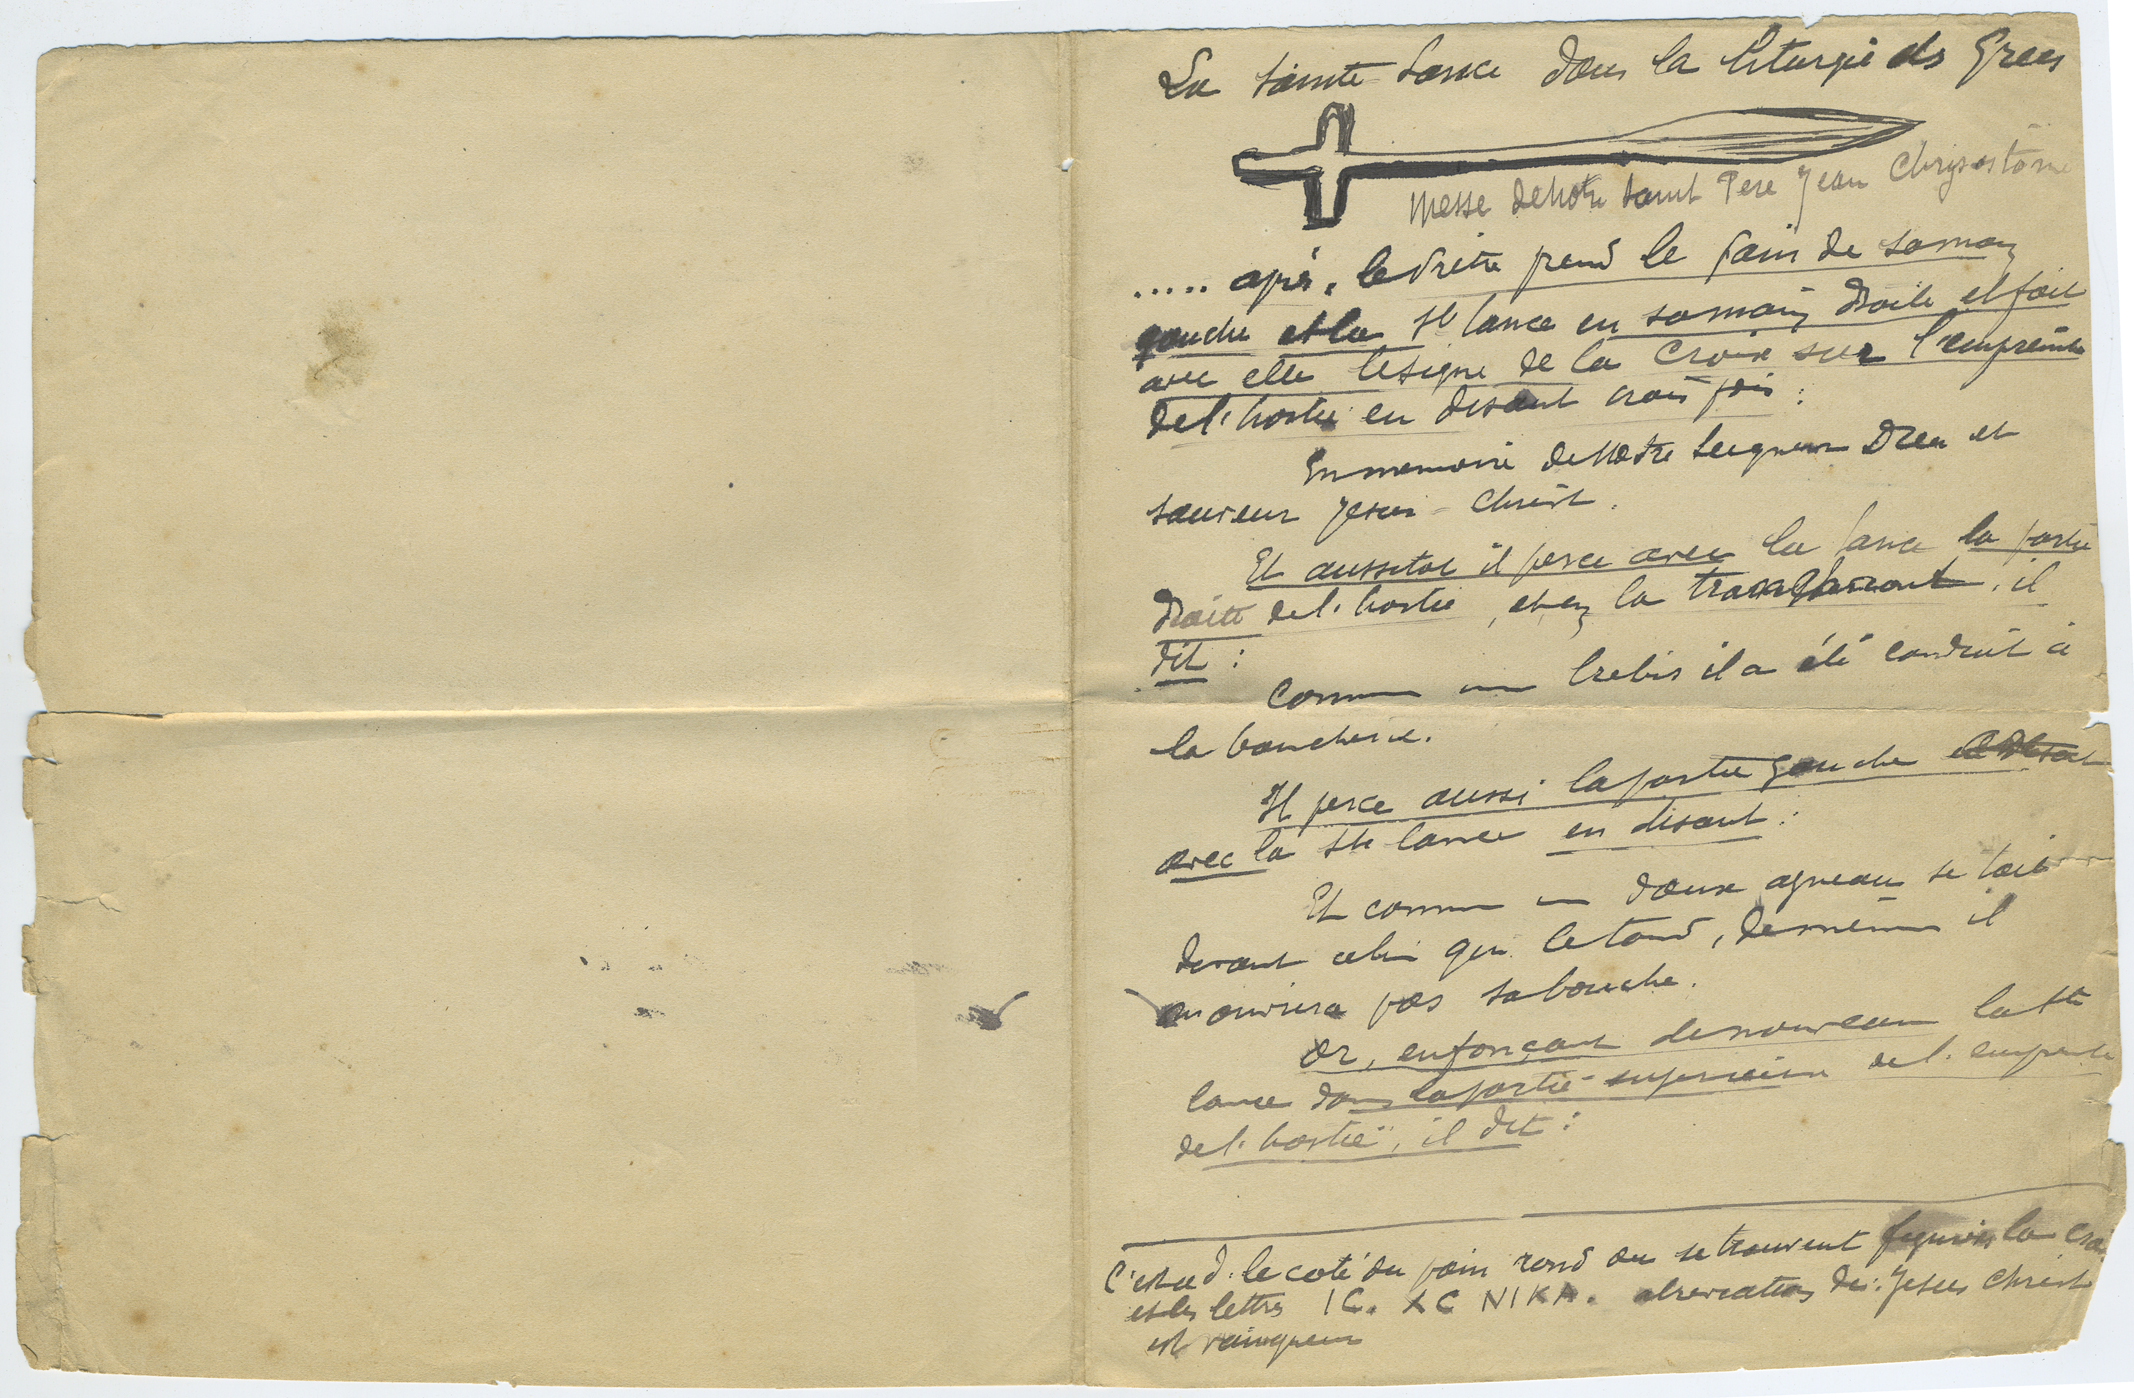 La Sainte Lance dans la liturgie des Grecs
Messe de Notre Saint Pere Jean Chrysostome
..... après, le Prêtre prend le pain de sa main
gauche et la Ste lance en sa main droite et fait
avec elle le signe de la Croix sur l'empreinte
de l'hostie en disant trois fois :
En memoire de Notre Seigneur Dieu et
Sauveur Jesus-Christ.
Et aussitot il perce avec la lance la partie
droite de l'hostie, et en la transperçant, il
dit :
Comme une brebis il a été conduit à
la boucherie.
Il perce aussi la partie gauche et disant
avec la Ste lance en disant :
Et comme un doux agneau se tait
devant celui qui le tond, de même il
n'ouvrira pas sa bouche.
Or, enfonçant de nouveau la Ste
lance dans la partie superieure de l'empreinte
de l'hostie, il dit :
C'est a d. le coté du pain rond ou se trouvent la croix
et les lettres IC. XC NIKA. abreviations de : Jesus Christ
est vainqueur